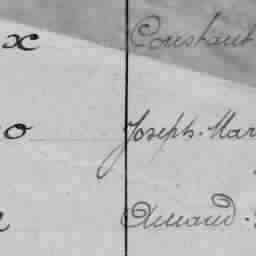 x Constant
o Joseph-Mar
Amand-